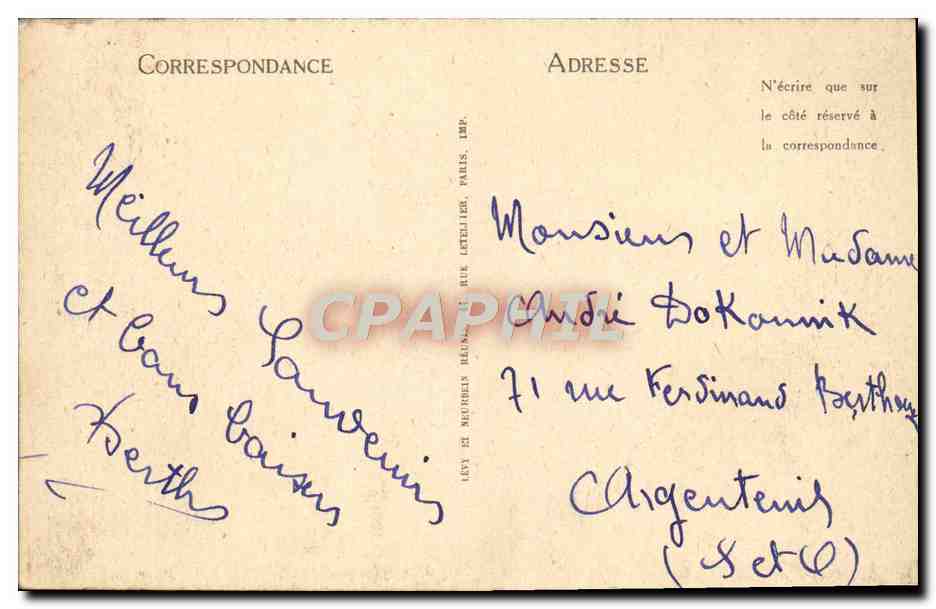 CORRESPONDANCE
ADRESSE
N'écrire que sur
le côté réservé à
la correspondance
Meilleurs Souvenirs
et bons baisers
Berthe
LÉVY ET NEURDEIN RÉUNIS, 44 RUE LETELLIER, PARIS, IMP.
CPAPHIL
Monsieur et Madame
André DoKannik
71 rue Ferdinand Berthoux
Argenteuil
(S et O)